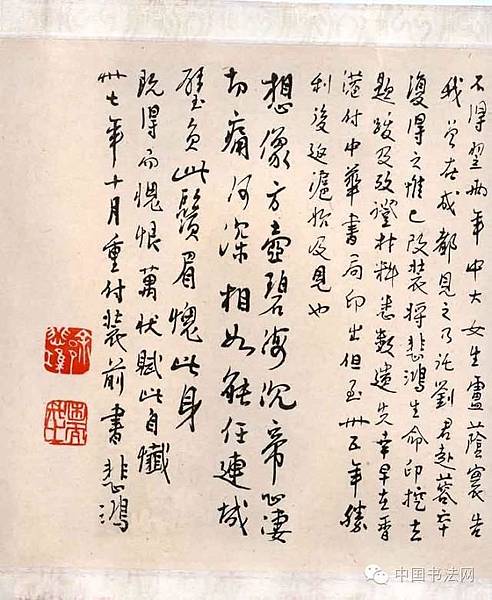 不得翌兩年中大女生盧蔭寰告
我曾在成都見之乃託劉君赴蓉卒
復得之惟已改裝將悲鴻生命印挖去
題跋及攷證材料悉數遺失幸早在香
港付中華書局印出但至卅五年勝
利後返滬始及見也
想像方壺碧海沉帝心淒
切痛何深相如能任連城
璧負此鬚眉愧此身
既得而愧恨萬狀賦此自懺
卅七年十月重付裝前書悲鴻
中国书法网